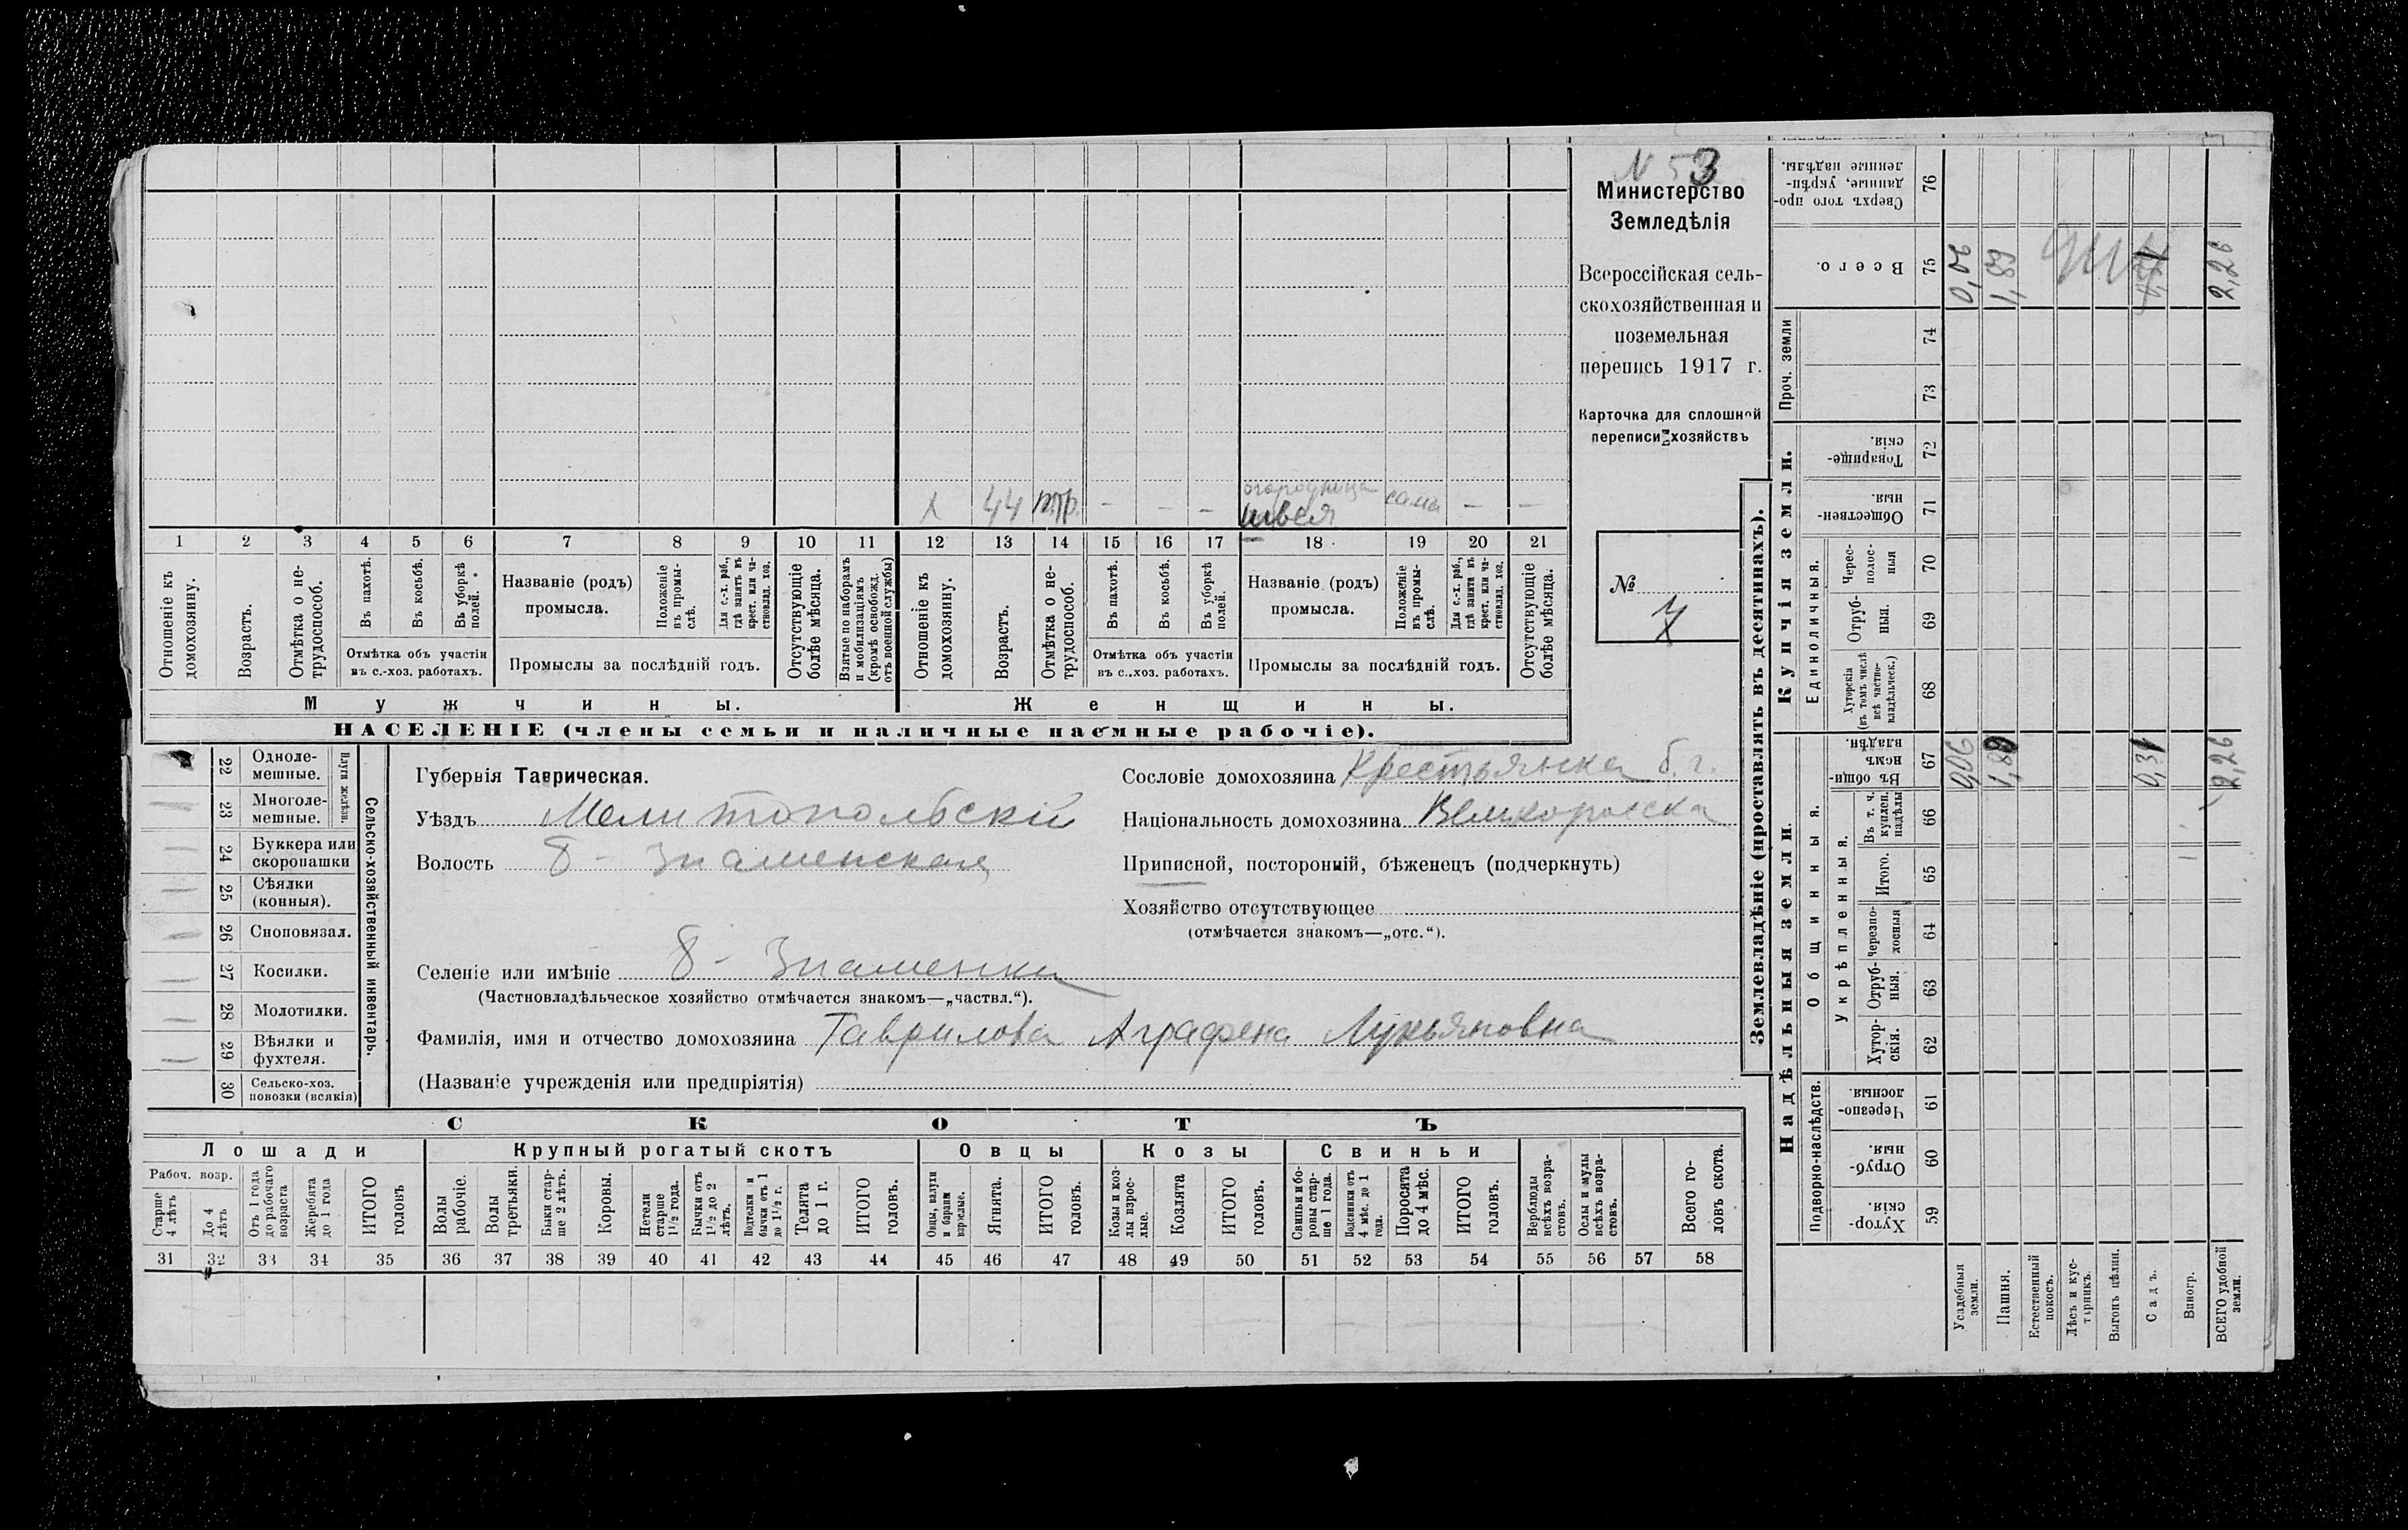 N 53
Министерство
Земледѣлія
Всероссійская сель-
скохозяйственная и
поземельная
перепись 1917 г.
Карточка для сплошной
переписи хозяйствъ
№
7
х 44 – – – огородница сама – –
швея
1 2 3 4 5 6 7 8 9 10 11 12 13 14 15 16 17 18 19 20 21
Отношеніе къ домохозяину.
Возрастъ.
Отмѣтка о не-трудоспособ.
Въ пахотѣ.
Въ косьбѣ.
Въ уборкѣ полей.
Отмѣтка объ участіи
въ с.-хоз. работахъ.
Названіе (родъ)
промысла.
Положеніе въ промы-слѣ.
Для с.-х. раб., гдѣ занятъ въ крест. или ча-стновлад. хоз.
Промыслы за послѣдній годъ.
Отсутствующіе болѣе мѣсяца.
Взятые по наборамъ и мобилизаціямъ (кромѣ освобожд. отъ военной службы)
Отношеніе къ домохозяину.
Возрастъ.
Отмѣтка о не-трудоспособ.
Въ пахотѣ.
Въ косьбѣ.
Въ уборкѣ полей.
Отмѣтка объ участіи
въ с.-хоз. работахъ.
Названіе (родъ)
промысла.
Положеніе въ промы-слѣ.
Для с.-х. раб., гдѣ занята въ крест. или ча-стновлад. хоз.
Промыслы за послѣдній годъ.
Отсутствующіе болѣе мѣсяца.
Мужчины.
Женщины.
НАСЕЛЕНІЕ (члены семьи и наличные наемные рабочіе).
Сельско-хозяйственный инвентарь.
Плуги желѣзн.
22 Однолемешные.
23 Многолемешные.
24 Буккера или скоропашки
25 Сѣялки (конныя).
26 Сноповязал.
27 Косилки.
28 Молотилки.
29 Вѣялки и фухтеля.
30 Сельско-хоз. повозки (всякія)
Губернія Таврическая.
Уѣздъ Мелитопольскій
Волость Б - Знаменская
Селеніе или имѣніе Б - Знаменки
(Частновладѣльческое хозяйство отмѣчается знакомъ—„частвл.“).
Фамилія, имя и отчество домохозяина Гаврилова Аграфена Лукьяновна
(Названіе учрежденія или предпріятія)
Сословіе домохозяина Крестьянка б. г.
Національность домохозяина Великоросска
Приписной, посторонній, бѣженецъ (подчеркнуть)
Хозяйство отсутствующее
(отмѣчается знакомъ—„отс.“).
СКОТЪ
Лошади
Крупный рогатый скотъ
Овцы
Козы
Свиньи
Рабоч. возр.
Старше 4 лѣтъ
До 4 лѣтъ
Отъ 1 года до рабочаго возраста
Жеребята до 1 года
ИТОГО головъ
Волы рабочіе.
Волы третьяки.
Быки стар-ше 2 лѣтъ.
Коровы.
Нетели старше 1½ года.
Бычки отъ 1½ до 2 лѣтъ.
Подтелки и бычки отъ 1 до 1½ г.
Телята до 1 г.
ИТОГО головъ.
Овцы, валухи и бараны взрослые.
Ягнята.
ИТОГО головъ.
Козы и коз-лы взрос-лые.
Козлята
ИТОГО головъ.
Свиньи и бо-ровы стар-ше 1 года.
Подсвинки отъ 4 мѣс. до 1 года.
Поросята до 4 мѣс.
ИТОГО головъ.
Верблюды всѣхъ возра-стовъ.
Ослы и мулы всѣхъ возра-стовъ.
Всего го-ловъ скота.
31 32 33 34 35 36 37 38 39 40 41 42 43 44 45 46 47 48 49 50 51 52 53 54 55 56 57 58
Землевладѣніе (проставлять въ десятинахъ).
Купчія земли.
Надѣльныя земли.
Сверхъ того про-данные, укрѣп-ленные надѣлы. 76
Всего. 75 0,06 1,89 2,26
Проч. земли 74 73
Товарище-скія. 72
Обществен-ныя. 71
Единоличныя.
Черес-полос-ныя 70
Отруб-ныя. 69
Хуторскія (въ томъ числѣ всѣ частно-владѣльческ.) 68
Общинныя.
Въ общи-номъ владѣн. 67 0,06 1,89 0,31 2,26
Укрѣпленныя.
Въ т. ч. куплен. надѣлы 66
Итого. 65
Черезпо-лосныя 64
Отруб-ныя. 63
Хутор-скія. 62
Подворно-наслѣдств.
Черезпо-лосныя 61
Отруб-ныя. 60
Хутор-скія. 59
Усадебныя земли.
Пашня.
Естественный покосъ.
Лѣсъ и кус-тарникъ.
Выгонъ цѣлин.
Садъ.
Виногр.
ВСЕГО удобной земли.